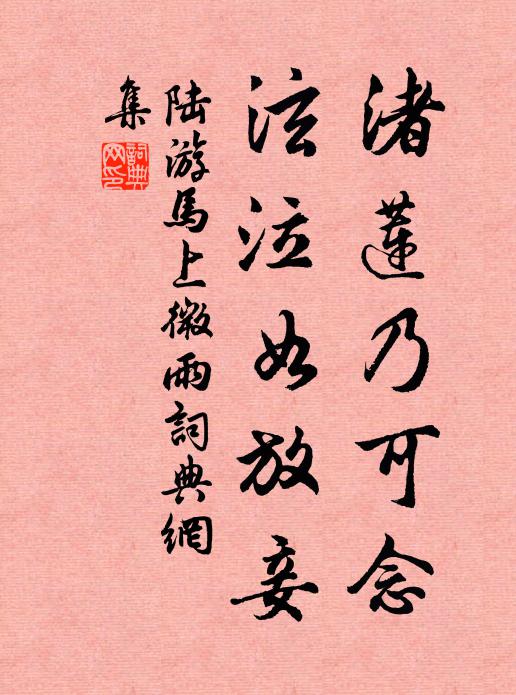 渚蓮乃可念
泫泣如放妾
陸游馬上微雨詞典網
集
詞典
网印